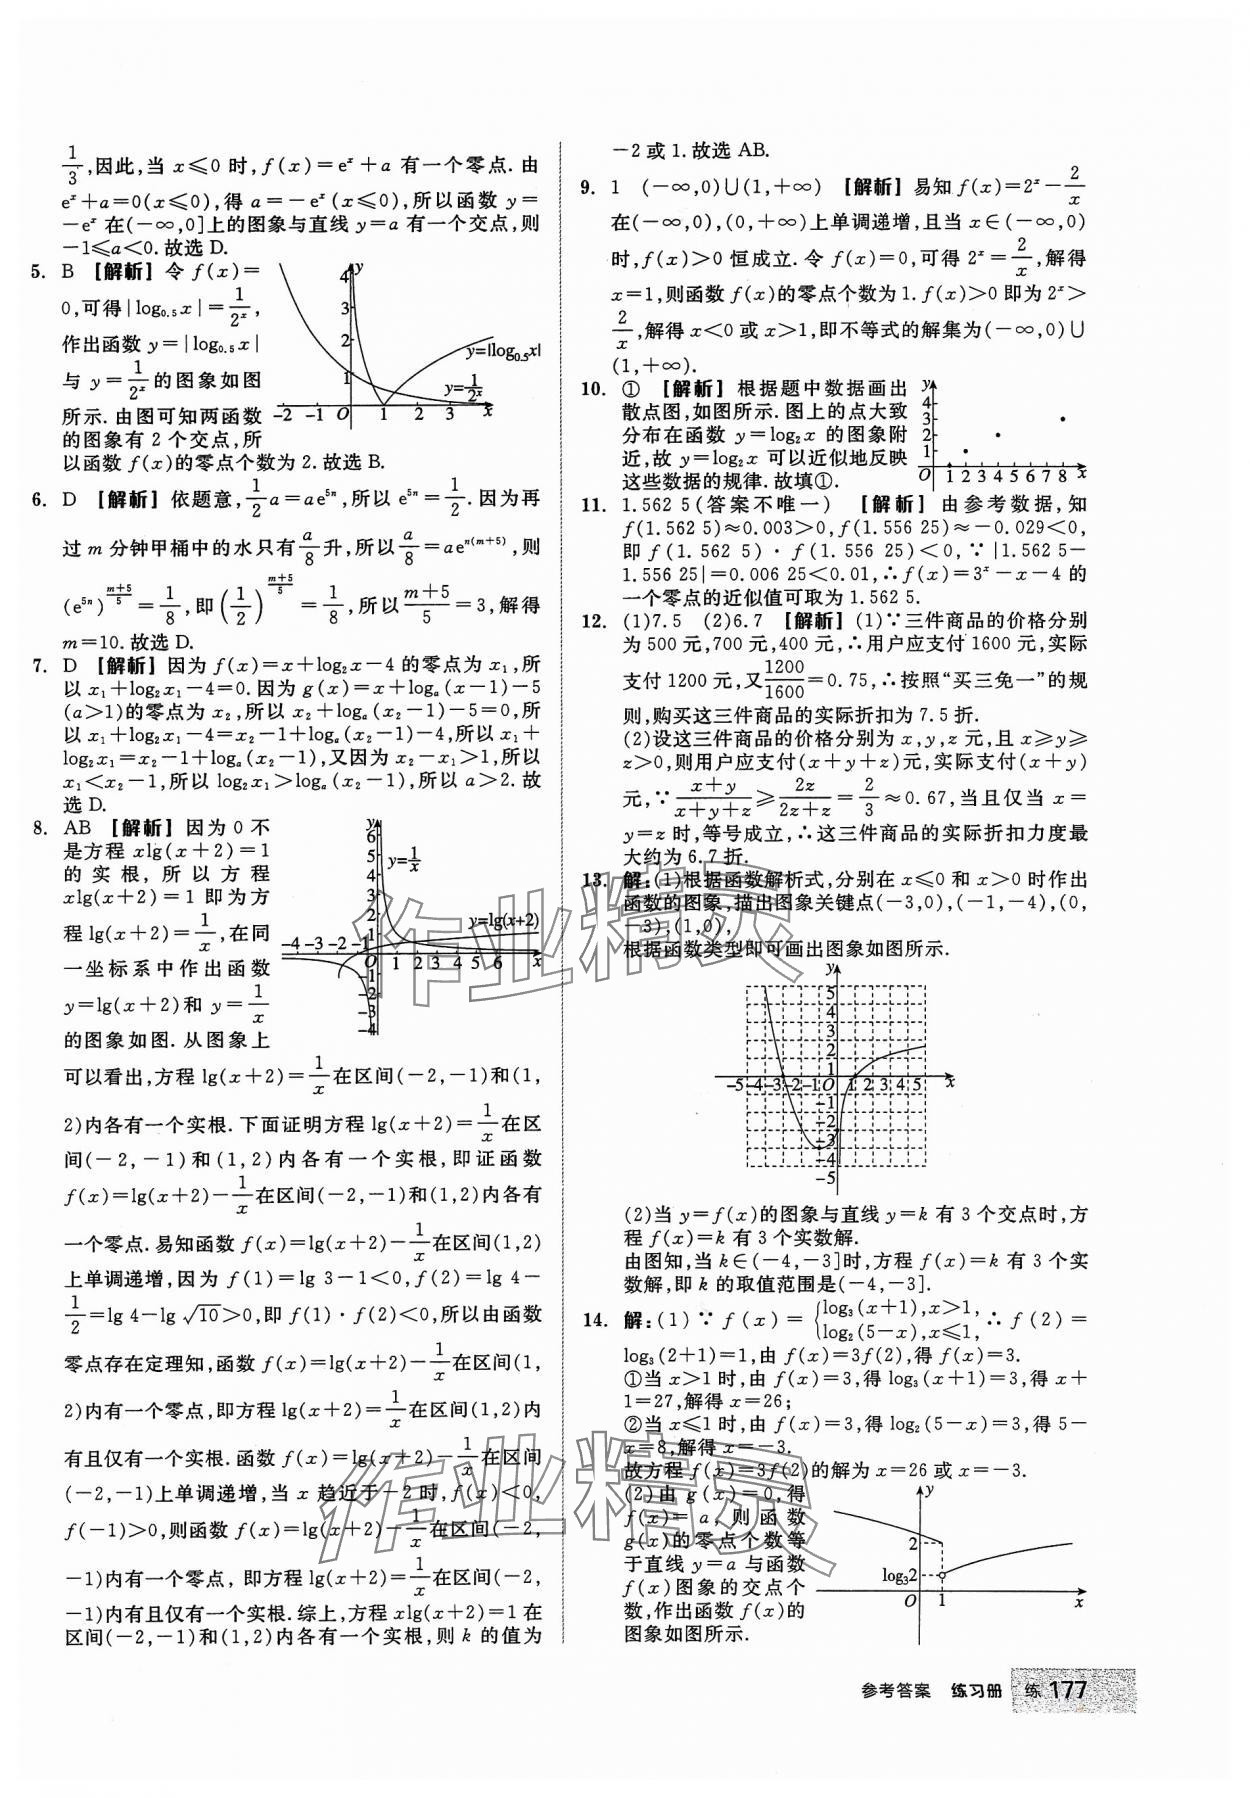 1/3,因此,当 x⩽0 时,f(x)=eˣ+a 有一个零点.由
eˣ+a=0(x⩽0),得 a=-eˣ(x⩽0),所以函数 y=
-eˣ 在(-∞,0]上的图象与直线 y=a 有一个交点,则
-1⩽a<0.故选 D.
5. B 【解析】令 f(x)=
0,可得|log₀.₅x|=1/2ˣ,
作出函数 y=|log₀.₅x|
与 y=1/2ˣ的图象如图
所示.由图可知两函数
的图象有 2 个交点,所
以函数 f(x)的零点个数为 2.故选 B.
y
4
3
2
1
y=|log₀.₅x|
y=1/2ˣ
-2 -1 O 1 2 3 x
6. D 【解析】依题意,1/2 a=ae⁵ⁿ,所以 e⁵ⁿ=1/2.因为再
过 m 分钟甲桶中的水只有a/8升,所以a/8=aeⁿ⁽ᵐ⁺⁵⁾,则
(e⁵ⁿ)^((m+5)/5)=1/8,即(1/2)^((m+5)/5)=1/8,所以(m+5)/5=3,解得
m=10.故选 D.
7. D 【解析】因为 f(x)=x+log₂x-4 的零点为 x₁,所
以 x₁+log₂x₁-4=0.因为 g(x)=x+logₐ(x-1)-5
(a>1)的零点为 x₂,所以 x₂+logₐ(x₂-1)-5=0,所
以 x₁+log₂x₁-4=x₂-1+logₐ(x₂-1)-4,所以 x₁+
log₂x₁=x₂-1+logₐ(x₂-1),又因为 x₂-x₁>1,所以
x₁<x₂-1,所以 log₂x₁>logₐ(x₂-1),所以 a>2.故
选 D.
8. AB 【解析】因为 0 不
是方程 xlg(x+2)=1
的实根,所以方程
xlg(x+2)=1 即为方
程 lg(x+2)=1/x,在同
一坐标系中作出函数
y=lg(x+2)和 y=1/x
的图象如图.从图象上
y
6
5
4
3
2
1
y=1/x
y=lg(x+2)
-4 -3 -2 -1 O 1 2 3 4 5 6 x
-1
-2
-3
-4
可以看出,方程 lg(x+2)=1/x在区间(-2,-1)和(1,
2)内各有一个实根.下面证明方程 lg(x+2)=1/x在区
间(-2,-1)和(1,2)内各有一个实根,即证函数
f(x)=lg(x+2)-1/x在区间(-2,-1)和(1,2)内各有
一个零点.易知函数 f(x)=lg(x+2)-1/x在区间(1,2)
上单调递增,因为 f(1)=lg 3-1<0,f(2)=lg 4-
1/2=lg 4-lg √10>0,即 f(1)·f(2)<0,所以由函数
零点存在定理知,函数 f(x)=lg(x+2)-1/x在区间(1,
2)内有一个零点,即方程 lg(x+2)=1/x在区间(1,2)内
有且仅有一个实根.函数 f(x)=lg(x+2)-1/x在区间
(-2,-1)上单调递增,当 x 趋近于-2 时,f(x)<0,
f(-1)>0,则函数 f(x)=lg(x+2)-1/x在区间(-2,
-1)内有一个零点,即方程 lg(x+2)=1/x在区间(-2,
-1)内有且仅有一个实根.综上,方程 xlg(x+2)=1 在
区间(-2,-1)和(1,2)内各有一个实根,则 k 的值为
-2 或 1.故选 AB.
9. 1 (-∞,0)∪(1,+∞) 【解析】易知 f(x)=2ˣ-2/x
在(-∞,0),(0,+∞)上单调递增,且当 x∈(-∞,0)
时,f(x)>0 恒成立.令 f(x)=0,可得 2ˣ=2/x,解得
x=1,则函数 f(x)的零点个数为 1.f(x)>0 即为 2ˣ>
2/x,解得 x<0 或 x>1,即不等式的解集为(-∞,0)∪
(1,+∞).
10. ① 【解析】根据题中数据画出
散点图,如图所示.图上的点大致
分布在函数 y=log₂x 的图象附
近,故 y=log₂x 可以近似地反映
这些数据的规律.故填①.
y
4
3
2
1
O 1 2 3 4 5 6 7 8 x
11. 1.562 5(答案不唯一) 【解析】由参考数据,知
f(1.562 5)≈0.003>0,f(1.556 25)≈-0.029<0,
即 f(1.562 5)·f(1.556 25)<0,∵|1.562 5-
1.556 25|=0.006 25<0.01,∴f(x)=3ˣ-x-4 的
一个零点的近似值可取为 1.562 5.
12. (1)7.5 (2)6.7 【解析】(1)∵三件商品的价格分别
为 500 元,700 元,400 元,∴用户应支付 1600 元,实际
支付 1200 元,又1200/1600=0.75,∴按照“买三免一”的规
则,购买这三件商品的实际折扣为 7.5 折.
(2)设这三件商品的价格分别为 x,y,z 元,且 x⩾y⩾
z>0,则用户应支付(x+y+z)元,实际支付(x+y)
元,∵(x+y)/(x+y+z)⩾2z/(2z+z)=2/3≈0.67,当且仅当 x=
y=z 时,等号成立,∴这三件商品的实际折扣力度最
大约为 6.7 折.
13. 解:(1)根据函数解析式,分别在 x⩽0 和 x>0 时作出
函数的图象,描出图象关键点(-3,0),(-1,-4),(0,
-3),(1,0),
根据函数类型即可画出图象如图所示.
y
5
4
3
2
1
-5-4-3-2-1O 1 2 3 4 5 x
-1
-2
-3
-4
-5
(2)当 y=f(x)的图象与直线 y=k 有 3 个交点时,方
程 f(x)=k 有 3 个实数解.
由图知,当 k∈(-4,-3]时,方程 f(x)=k 有 3 个实
数解,即 k 的取值范围是(-4,-3].
14. 解:(1)∵f(x)={log₃(x+1),x>1, log₂(5-x),x⩽1, ∴f(2)=
log₃(2+1)=1,由 f(x)=3f(2),得 f(x)=3.
①当 x>1 时,由 f(x)=3,得 log₃(x+1)=3,得 x+
1=27,解得 x=26;
②当 x⩽1 时,由 f(x)=3,得 log₂(5-x)=3,得 5-
x=8,解得 x=-3.
故方程 f(x)=3f(2)的解为 x=26 或 x=-3.
(2)由 g(x)=0,得
f(x)=a,则函数
g(x)的零点个数等
于直线 y=a 与函数
f(x)图象的交点个
数,作出函数 f(x)的
图象如图所示.
y
2
log₃2
O 1 x
作业精灵
作业精灵
参考答案 练习册 练 177